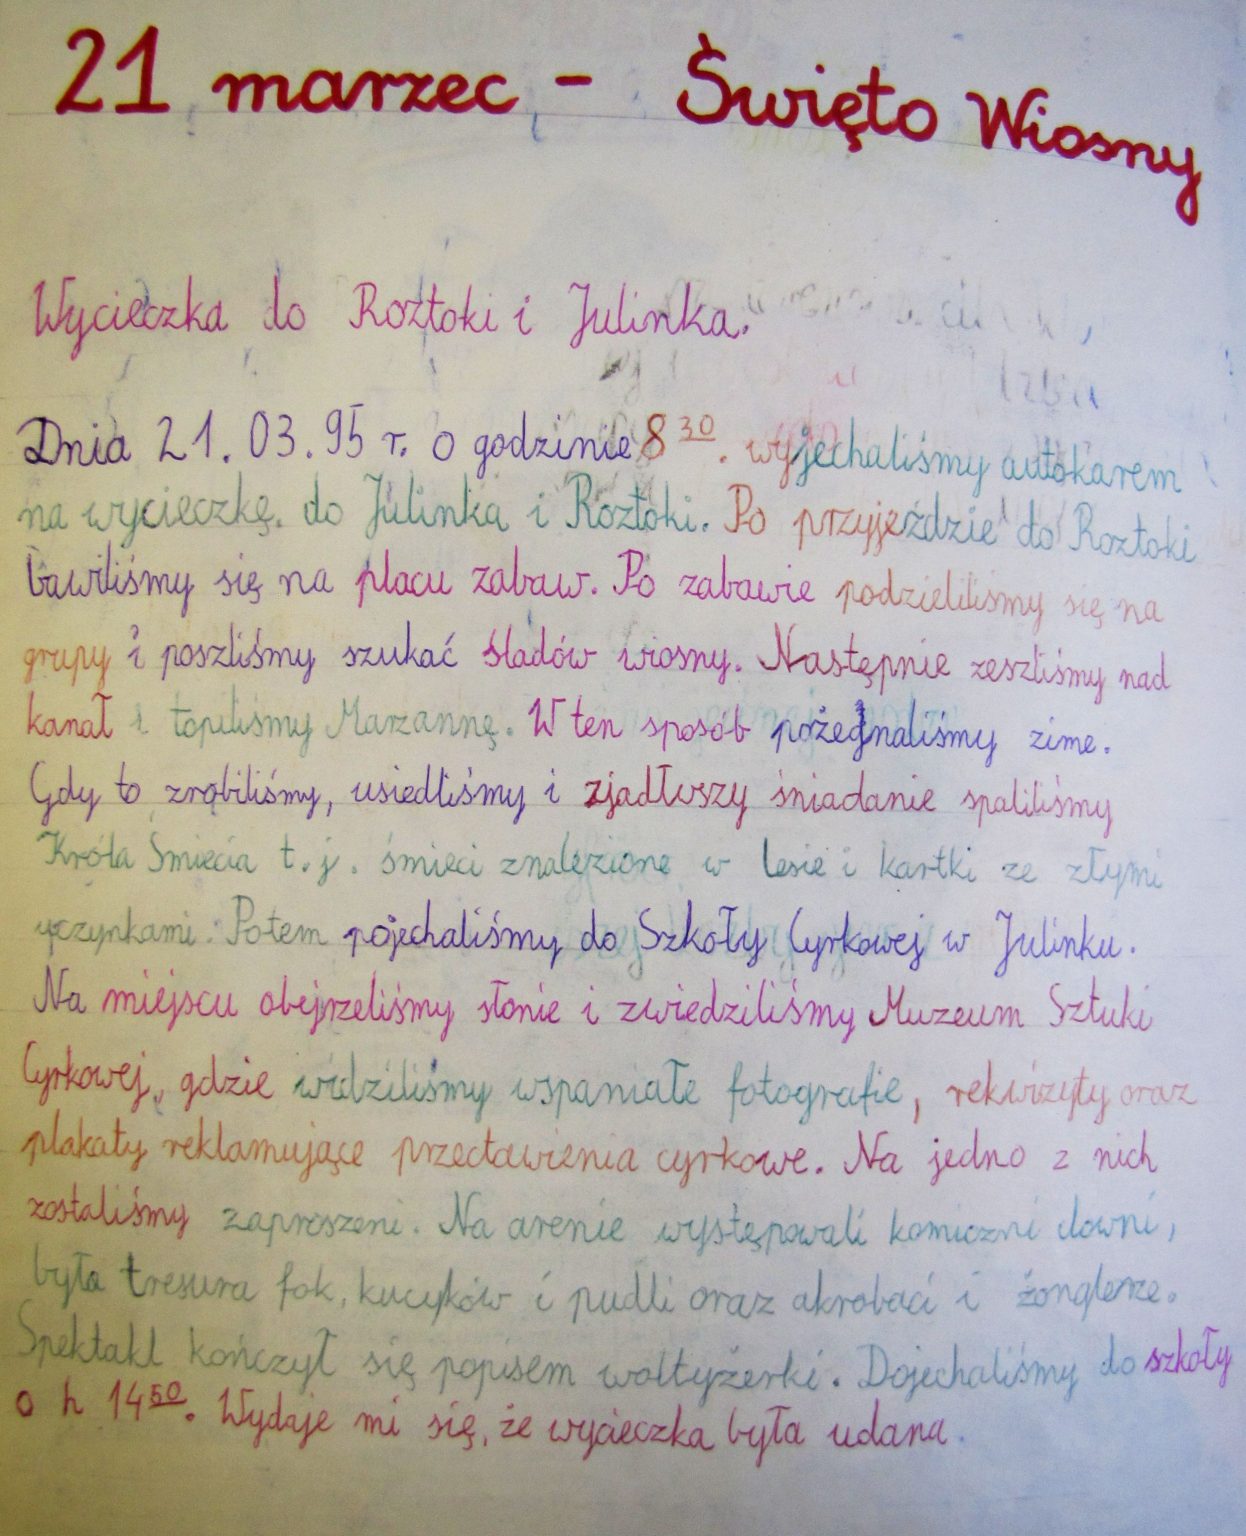 21 marzec - Święto Wiosny
Wycieczka do Roztoki i Julinka.
Dnia 21.03.95 r. o godzinie 8 30. wyjechaliśmy autokarem
na wycieczkę. do Julinka i Roztoki. Po przyjeździe do Roztoki
bawiliśmy się na placu zabaw. Po zabawie podzieliliśmy się na
grupy i poszliśmy szukać śladów wiosny. Następnie zeszliśmy nad
kanał i topiliśmy Marzannę. W ten sposób pożegnaliśmy zime.
Gdy to zrobiliśmy, usiedliśmy i zjadłszy śniadanie spaliliśmy
Króla Śmiecia t.j. śmieci znalezione w lesie i kartki ze złymi
uczynkami. Potem pojechaliśmy do Szkoły Cyrkowej w Julinku.
Na miejscu obejrzeliśmy słonie i zwiedziliśmy Muzeum Sztuki
Cyrkowej, gdzie widziliśmy wspaniałe fotografie, rekwizyty oraz
plakaty reklamujące przectawienia cyrkowe. Na jedno z nich
zostaliśmy zaproszeni. Na arenie występowali komiczni clowni,
była tresura fok, kucyków i pudli oraz akrobaci i żonglerze.
Spektakl kończył się popisem woltyżerki. Dojechaliśmy do szkoły
o h 14 50. Wydaje mi się, że wycieczka była udana.